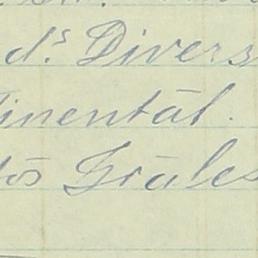 d.s Divers
tinental.
tos Grāles